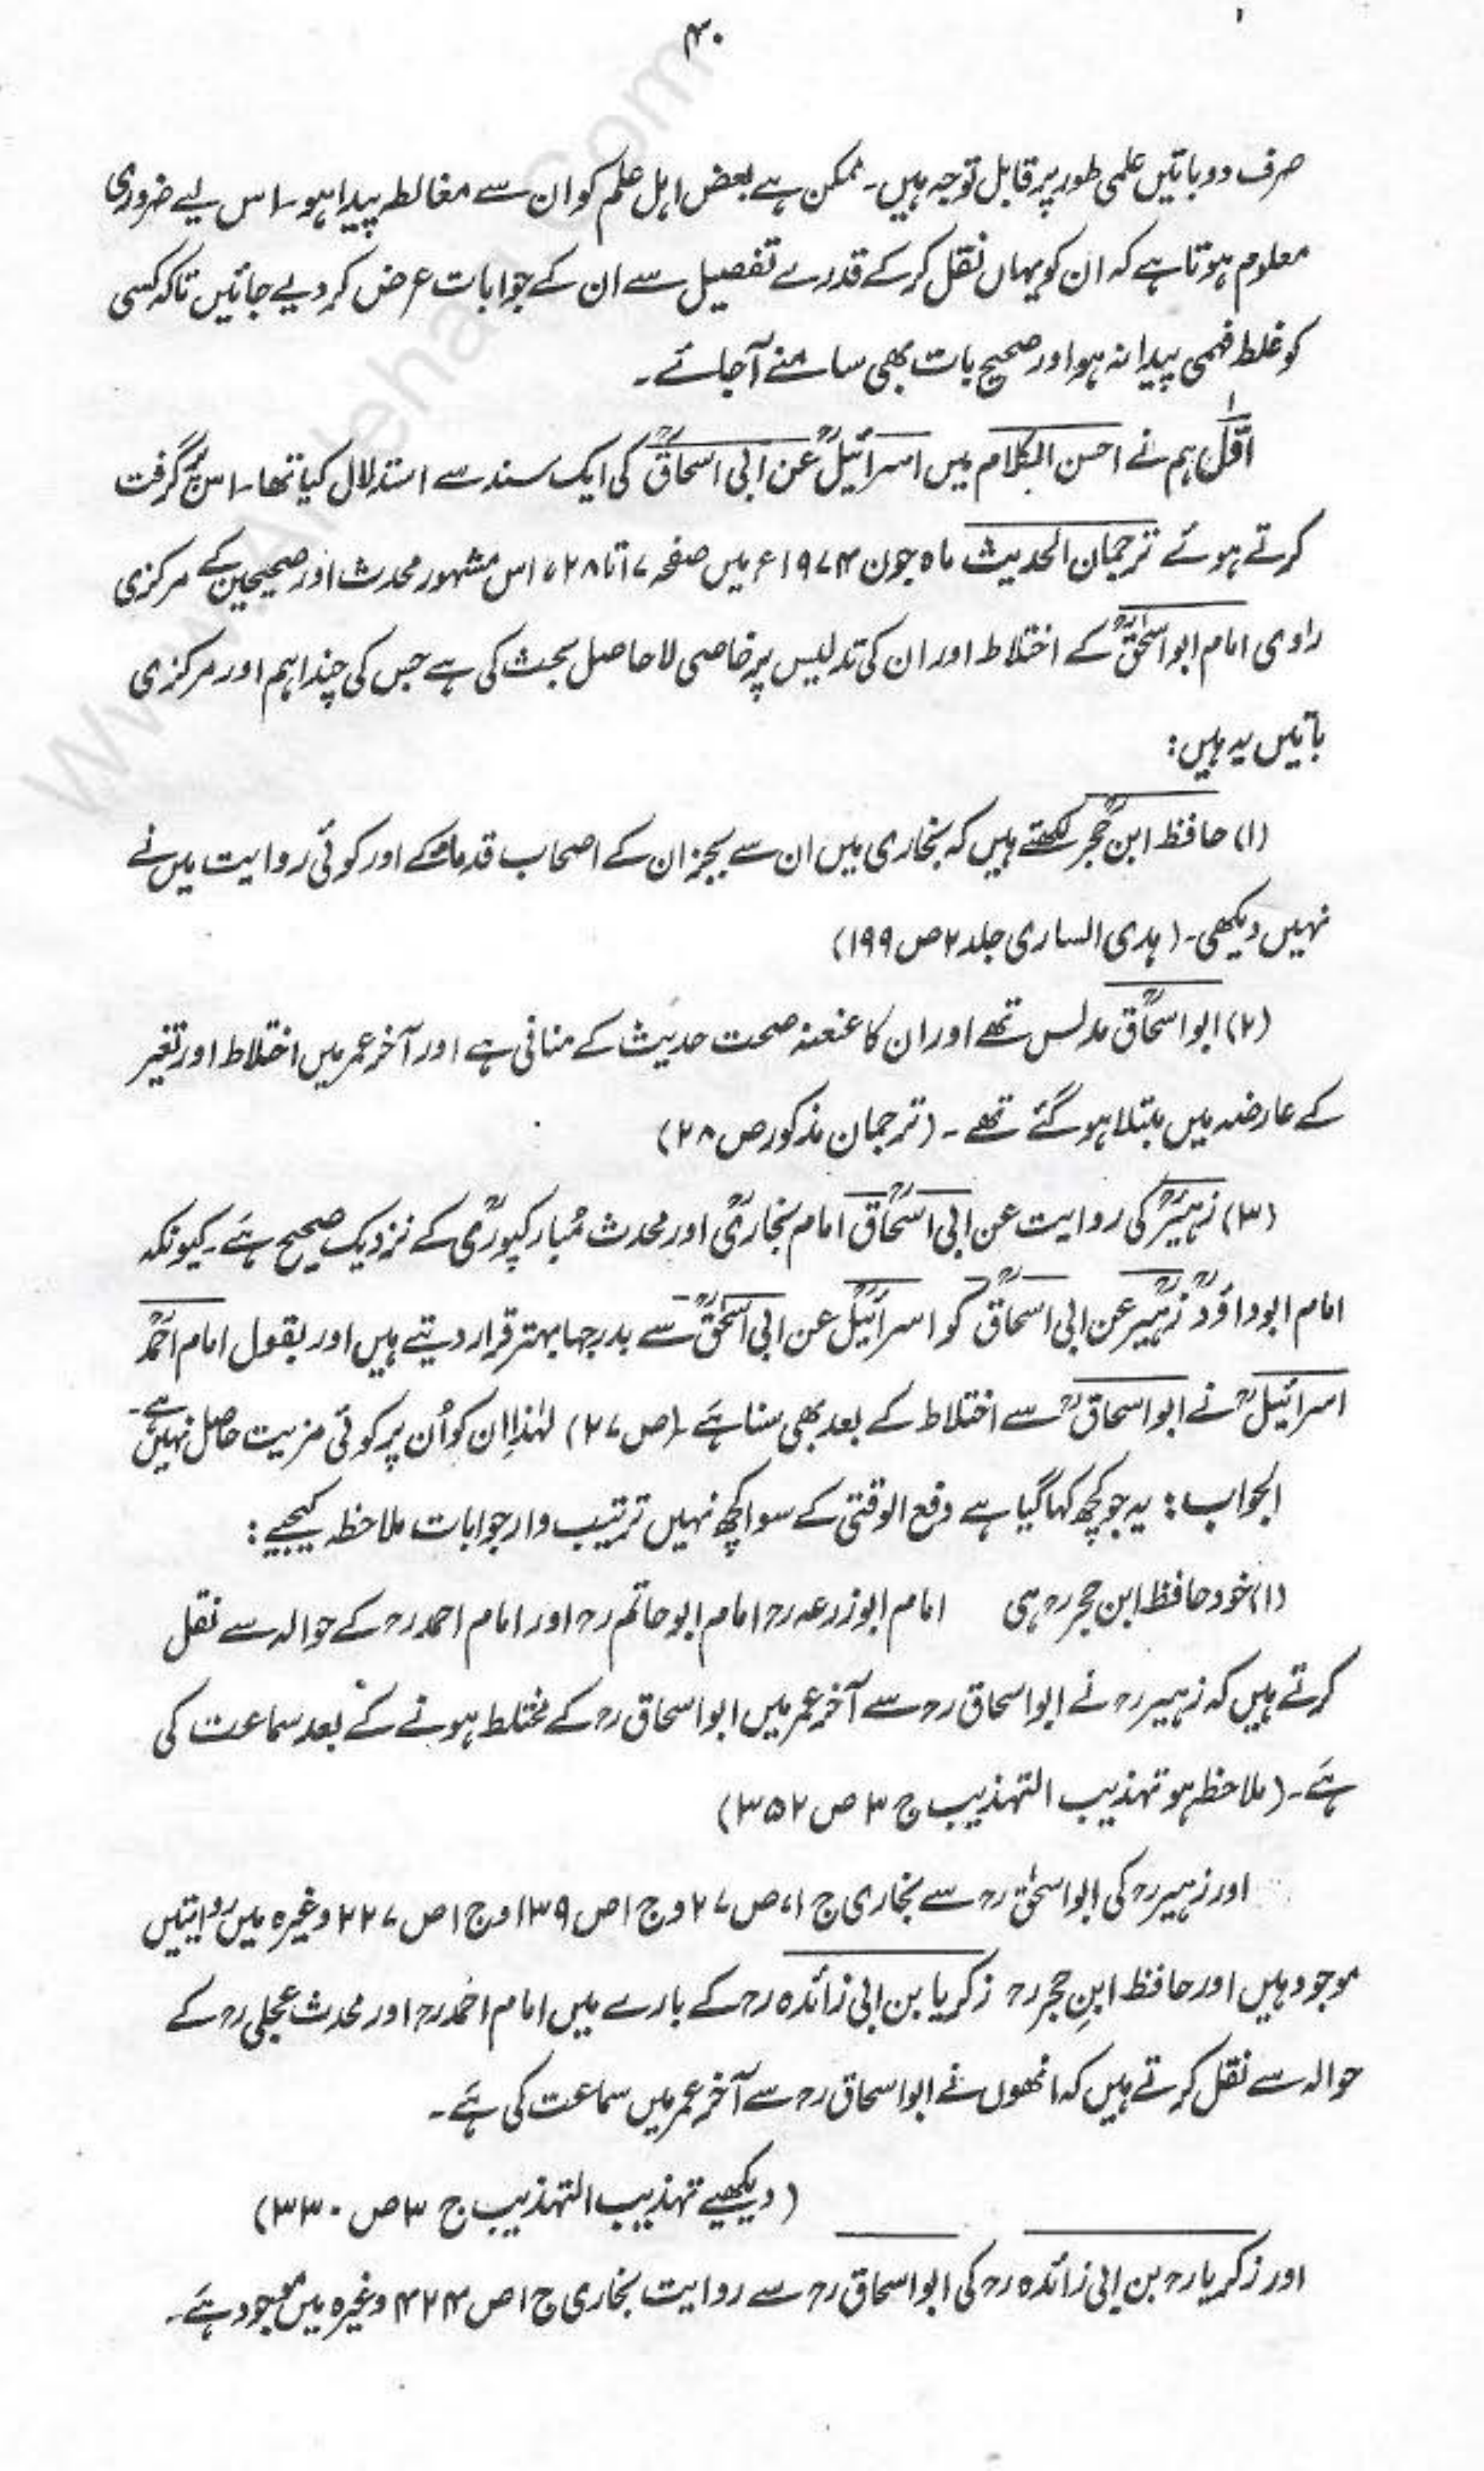 ۴۰
صرف دو باتیں علمی طور پر قابل توجہ ہیں۔ ممکن ہے بعض اہل علم کو ان سے مغالطہ پیدا ہو۔ اس لیے ضروری
معلوم ہوتا ہے کہ ان کو یہاں نقل کر کے قدرے تفصیل سے ان کے جوابات عرض کر دیے جائیں تاکہ کسی
کو غلط فہمی پیدا نہ ہو اور صحیح بات بھی سامنے آ جائے۔
اوّل ہم نے احسن الکلام میں اسرائیلؒ عن ابی اسحاقؒ کی ایک سند سے استدلال کیا تھا۔ اس پر گرفت
کرتے ہوئے ترجمان الحدیث ماہ جون ۱۹۷۴ء میں صفحہ ۱۷ تا ۲۸، اس مشہور محدث اور صحیحین کے مرکزی
راوی امام ابو اسحٰقؒ کے اختلاط اور ان کی تدلیس پر خاصی لاحاصل بحث کی ہے جس کی چند اہم اور مرکزی
باتیں یہ ہیں:
(۱) حافظ ابن حجرؒ لکھتے ہیں کہ بخاری میں ان سے بجز ان کے اصحاب قدماء کے اور کوئی روایت میں نے
نہیں دیکھی۔ (ہدی الساری جلد ۲ ص ۱۹۹)
(۲) ابو اسحاقؒ مدلس تھے اور ان کا عنعنہ صحت حدیث کے منافی ہے اور آخر عمر میں اختلاط اور تغیر
کے عارضہ میں مبتلا ہو گئے تھے۔ (ترجمان مذکور ص ۲۸)
(۳) زہیرؒ کی روایت عن ابی اسحاقؒ امام بخاریؒ اور محدث مُبارکپوریؒ کے نزدیک صحیح ہے۔ کیونکہ
امام ابو داؤدؒ زہیرؒ عن ابی اسحاقؒ کو اسرائیلؒ عن ابی اسحٰقؒ سے بدرجہا بہتر قرار دیتے ہیں اور بقول امام احمدؒ
اسرائیلؒ نے ابو اسحاقؒ سے اختلاط کے بعد بھی سنا ہے۔ (ص ۲۷) لہٰذا اِن کو اُن پر کوئی مزیت حاصل نہیں ہے۔
الجواب: یہ جو کچھ کہا گیا ہے دفع الوقتی کے سوا کچھ نہیں ترتیب وار جوابات ملاحظہ کیجیے:
(۱) خود حافظ ابن حجرؒ ہی امام ابو زرعہؒ امام ابو حاتمؒ اور امام احمدؒ کے حوالہ سے نقل
کرتے ہیں کہ زہیرؒ نے ابو اسحاقؒ سے آخر عمر میں ابو اسحاقؒ کے مختلط ہونے کے بعد سماعت کی
ہے۔ (ملاحظہ ہو تہذیب التہذیب ج ۳ ص ۳۵۲)
اور زہیرؒ کی ابو اسحٰقؒ سے بخاری ج ۱، ص ۲۷ و ج ۱ ص ۱۳۹ و ج ۱ ص ۲۲۷ وغیرہ میں روایتیں
موجود ہیں اور حافظ ابنِ حجرؒ زکریا بن ابی زائدہؒ کے بارے میں امام احمدؒ اور محدث عجلیؒ کے
حوالہ سے نقل کرتے ہیں کہ انھوں نے ابو اسحاقؒ سے آخر عمر میں سماعت کی ہے۔
(دیکھیے تہذیب التہذیب ج ۳ ص ۳۳۰)
اور زکریاؒ بن ابی زائدہؒ کی ابو اسحاقؒ سے روایت بخاری ج ۱ ص ۴۲۴ وغیرہ میں موجود ہے۔